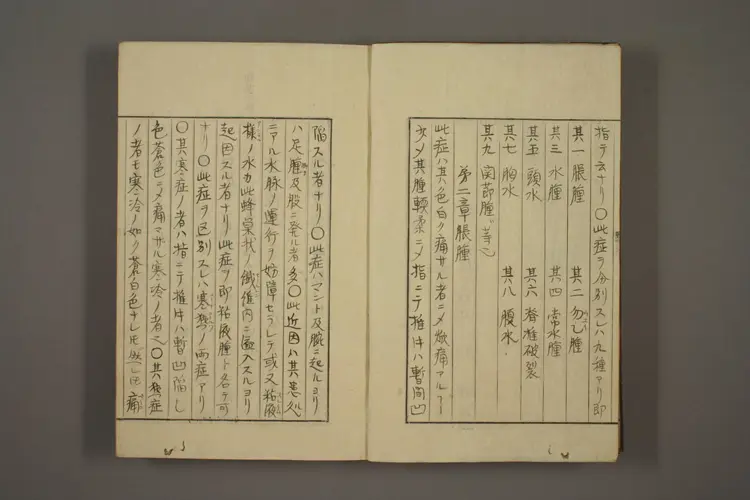 指テ云ナリ〇此症ヲ分別スレハ九種アリ即
其一 脹腫 其二 勿乙腫
其三 水腫 其四 常水腫
其五 頭水 其六 脊椎破裂
其七 胸水 其八 腹水
其九 関節腫等也
第二章脹腫
此症ハ其色白ク痛サル者ニメ焮痛アルヿ
少メ其腫軟柔ニメ指ニテ推セハ暫間凹
陥スル者ナリ〇此症ハマンド及腕ニ起ルヨリ
ハ足腫及股ニ発ル者多〇此近因ハ其患処
ニアル水脉ノ運行ヲ妨障セラレテ或又粘液
様ノ水カ此蜂窠状ノ繊維内ニ侵入スルヨリ
起因スル者ナリ此症ヲ即粘液腫ト名テ可
ナリ〇此症ヲ区別スレハ寒熱ノ両症アリ
〇其寒症ノ者ハ指ニテ推セハ暫凹陥し
色蒼色ニメ痛マザル寒冷ノ者ニ〇其熱症
ノ者モ寒冷ノ如ク蒼白色ナレモ 痛